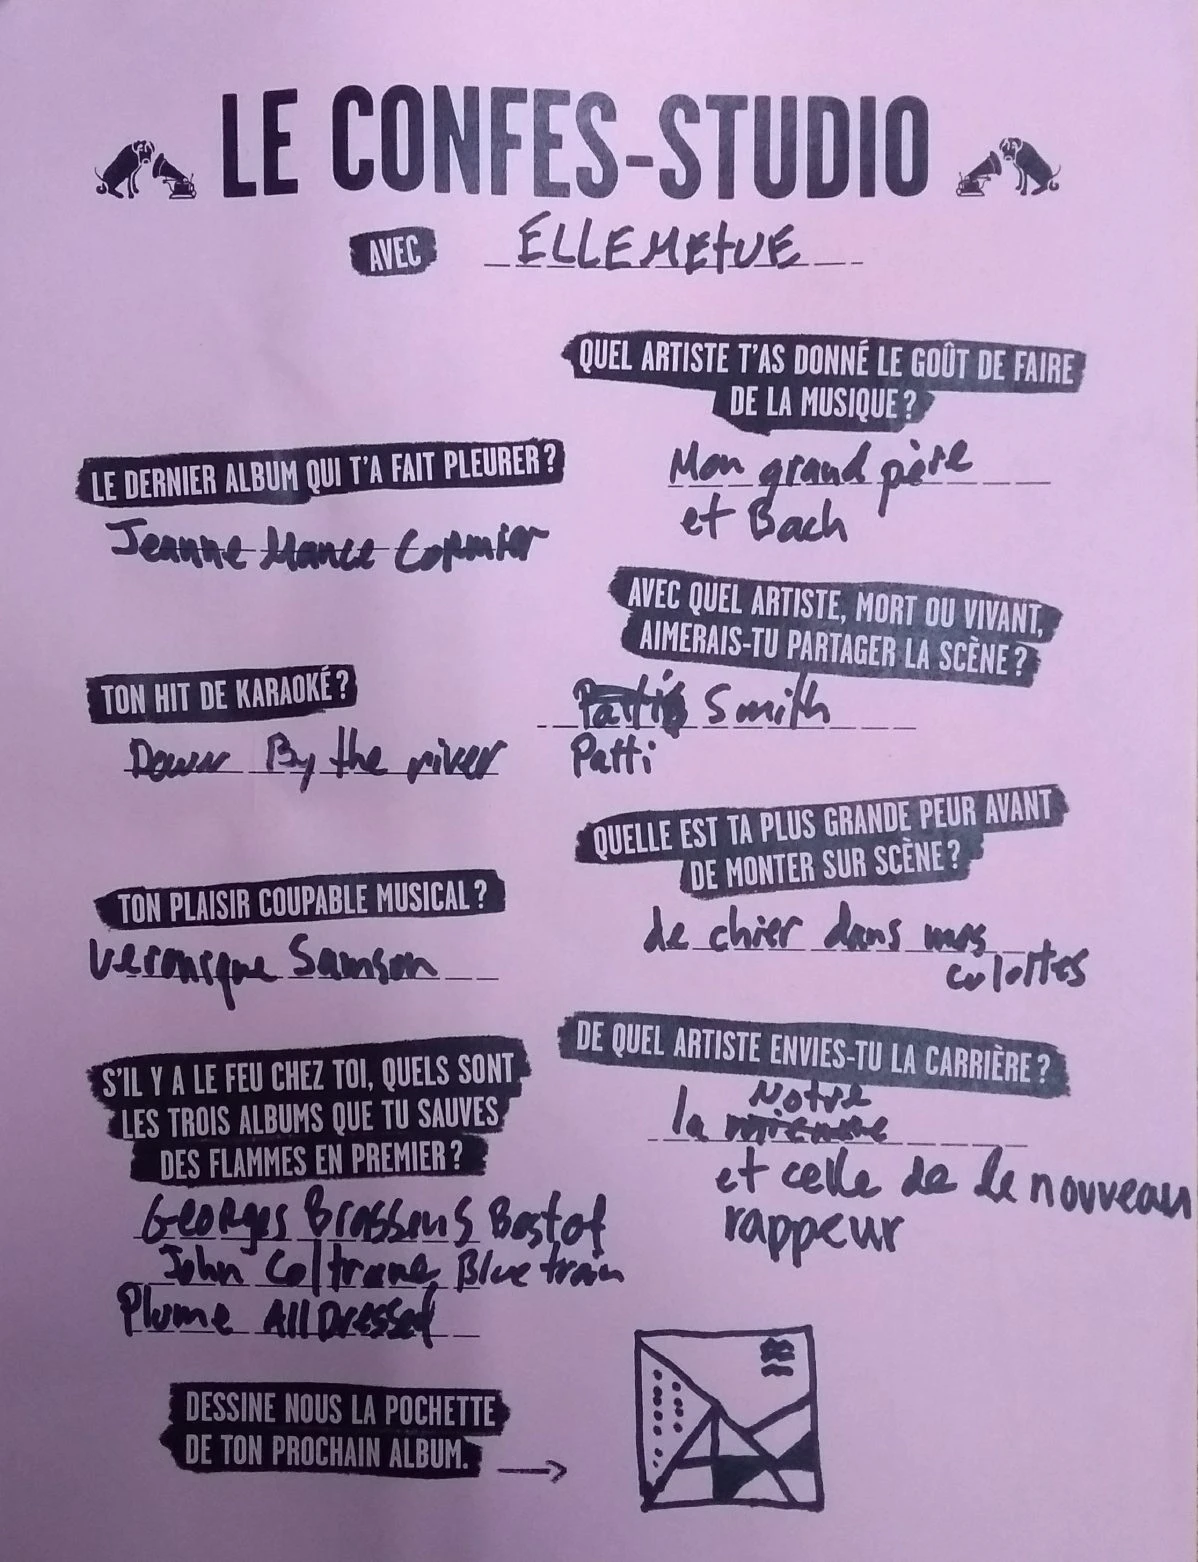 LE CONFES-STUDIO
AVEC ELLEMETUE
LE DERNIER ALBUM QUI T'A FAIT PLEURER?
Jeanne Mance Cormier
TON HIT DE KARAOKÉ?
Down By the river
TON PLAISIR COUPABLE MUSICAL?
Veronique Samson
S'IL Y A LE FEU CHEZ TOI, QUELS SONT
LES TROIS ALBUMS QUE TU SAUVES
DES FLAMMES EN PREMIER?
Georges Brassens Bestof
John Coltrane, Blue train
Plume All Dressed
DESSINE NOUS LA POCHETTE
DE TON PROCHAIN ALBUM.
QUEL ARTISTE T'AS DONNÉ LE GOÛT DE FAIRE
DE LA MUSIQUE?
Mon grand père
et Bach
AVEC QUEL ARTISTE, MORT OU VIVANT,
AIMERAIS-TU PARTAGER LA SCÈNE?
Smith
Patti
QUELLE EST TA PLUS GRANDE PEUR AVANT
DE MONTER SUR SCÈNE?
de chier dans mes
culottes
DE QUEL ARTISTE ENVIES-TU LA CARRIÈRE?
Notre
la mienne
et celle de le nouveau
rappeur